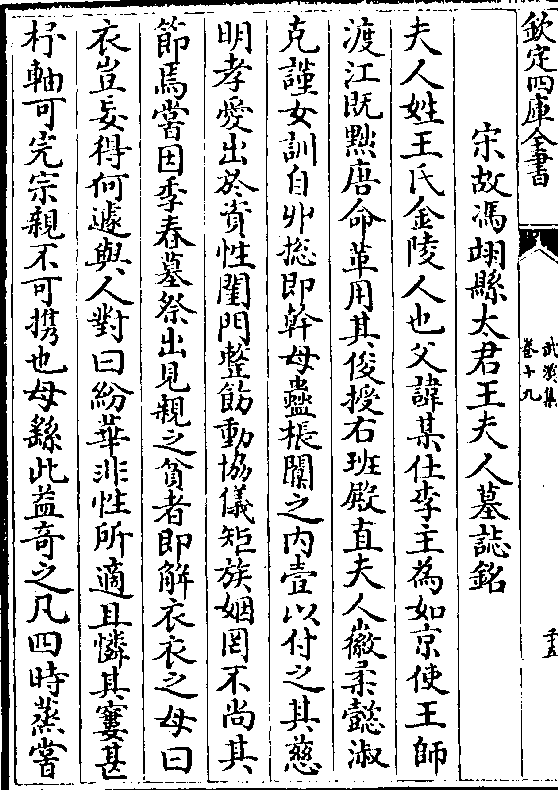 欽定四庫全書
武溪集
卷十九
宋故馮翊縣太君王夫人墓誌銘
夫人姓王氏金陵人也父諱某仕李主為如京使王師
渡江既黙唐命革用其俊授右班殿直夫人徽柔懿淑
克謹女訓自丱總即幹母蠱棖闑之内壹以付之其慈
明孝愛出於資性閨門整飭動協儀矩族姻罔不尚其
節焉嘗因季春墓祭出見親之貧者即解衣衣之母曰
衣豈妄得何遽與人對曰紛華非性所適且憐其窶甚
杼軸可完宗親不可攜也母繇此益奇之凡四時蒸嘗